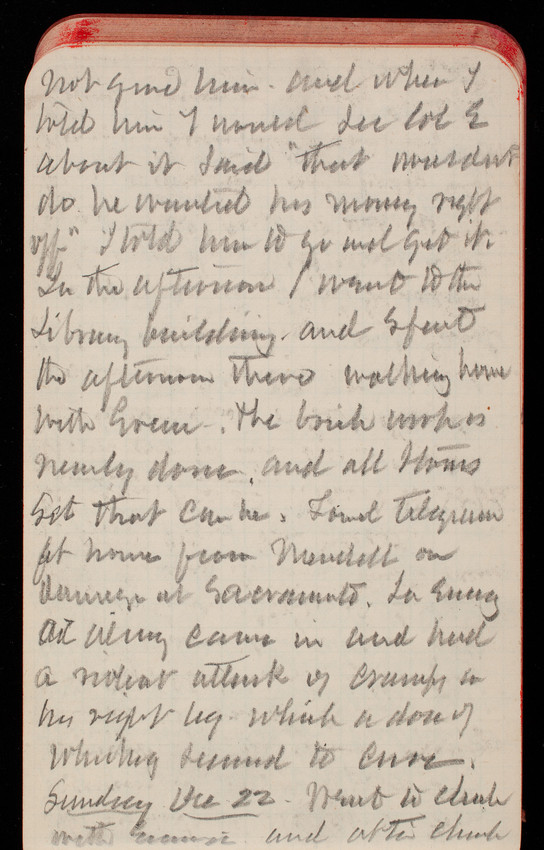 not give him. and when I
told him I would see Col E
about it said "that wouldn't
do he wanted his money right
off." I told him to go and get it.
In the afternoon I went to the
Library building. and spent
the afternoon there walking home
with Green. The brick work is
nearly done, and all stones
set that can be. Found telegram
at home from Mendell on
at Sacramento. In Evening
came in and had
a violent attack of cramps in
his right leg which a dose of
whiskey seemed to cure.
Sunday Dec 22. Went to church
with and after church